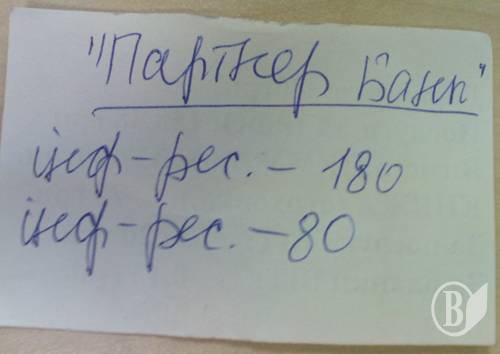 "Партнер Банк"
інф-рес. - 180
інф-рес. - 80
В